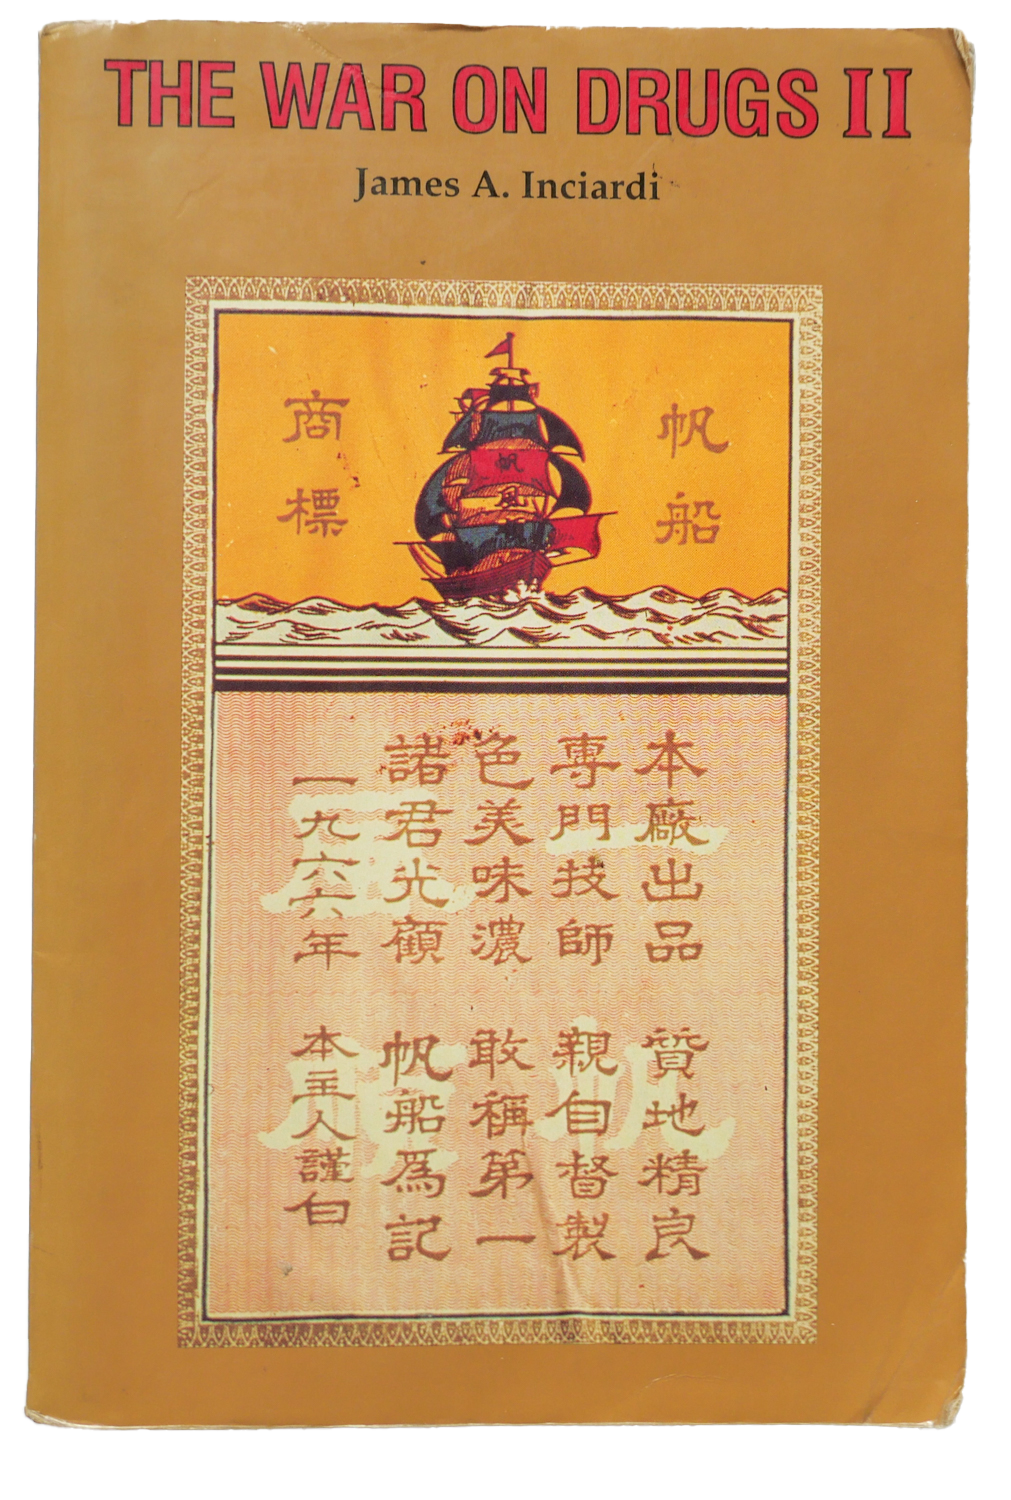 THE WAR ON DRUGS II
James A. Inciardi
帆船
商標
帆
風
本廠出品 質地精良
專門技師 親自督製
色美味濃 敢稱第一
諸君光顧 帆船爲記
一九六六年 本主人謹白